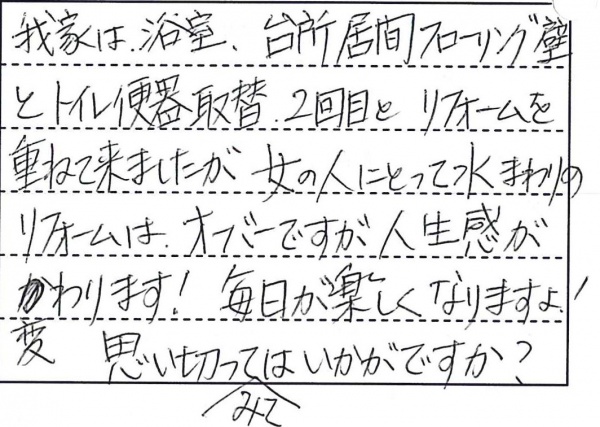 我家は、浴室、台所居間フローリング壁
とトイレ便器取替、2回目と リフォームを
重ねて来ましたが 女の人にとって水まわりの
リフォームは、オーバーですが人生感が
かわります! 毎日が楽しくなりますよ!
変 思い切ってはいかがですか?
みて